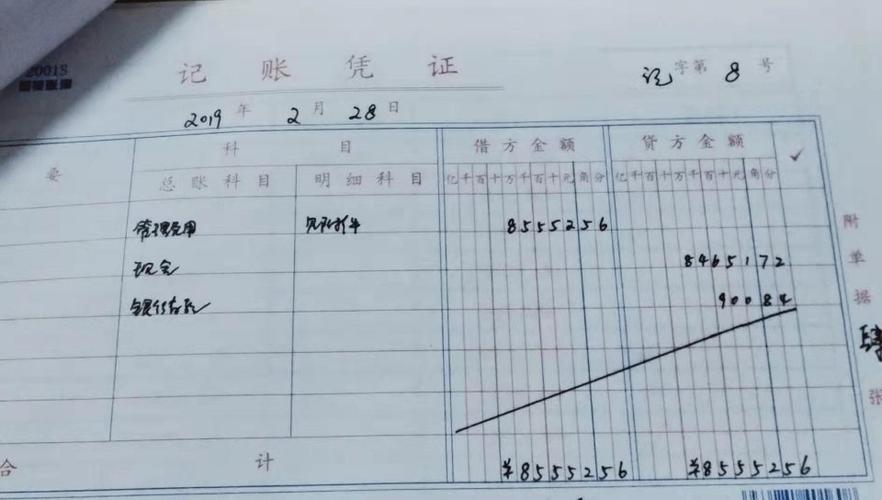 2001S
记账凭证
记字第 8 号
2019 年 2 月 28 日
要 科目 借方金额 贷方金额 ✓
总账科目 明细科目 亿千百十万千百十元角分 亿千百十万千百十元角分
管理费用 见附件 8555256
现金 8465172
银行存款 90084
合计 ¥8555256 ¥8555256
附单据肆张